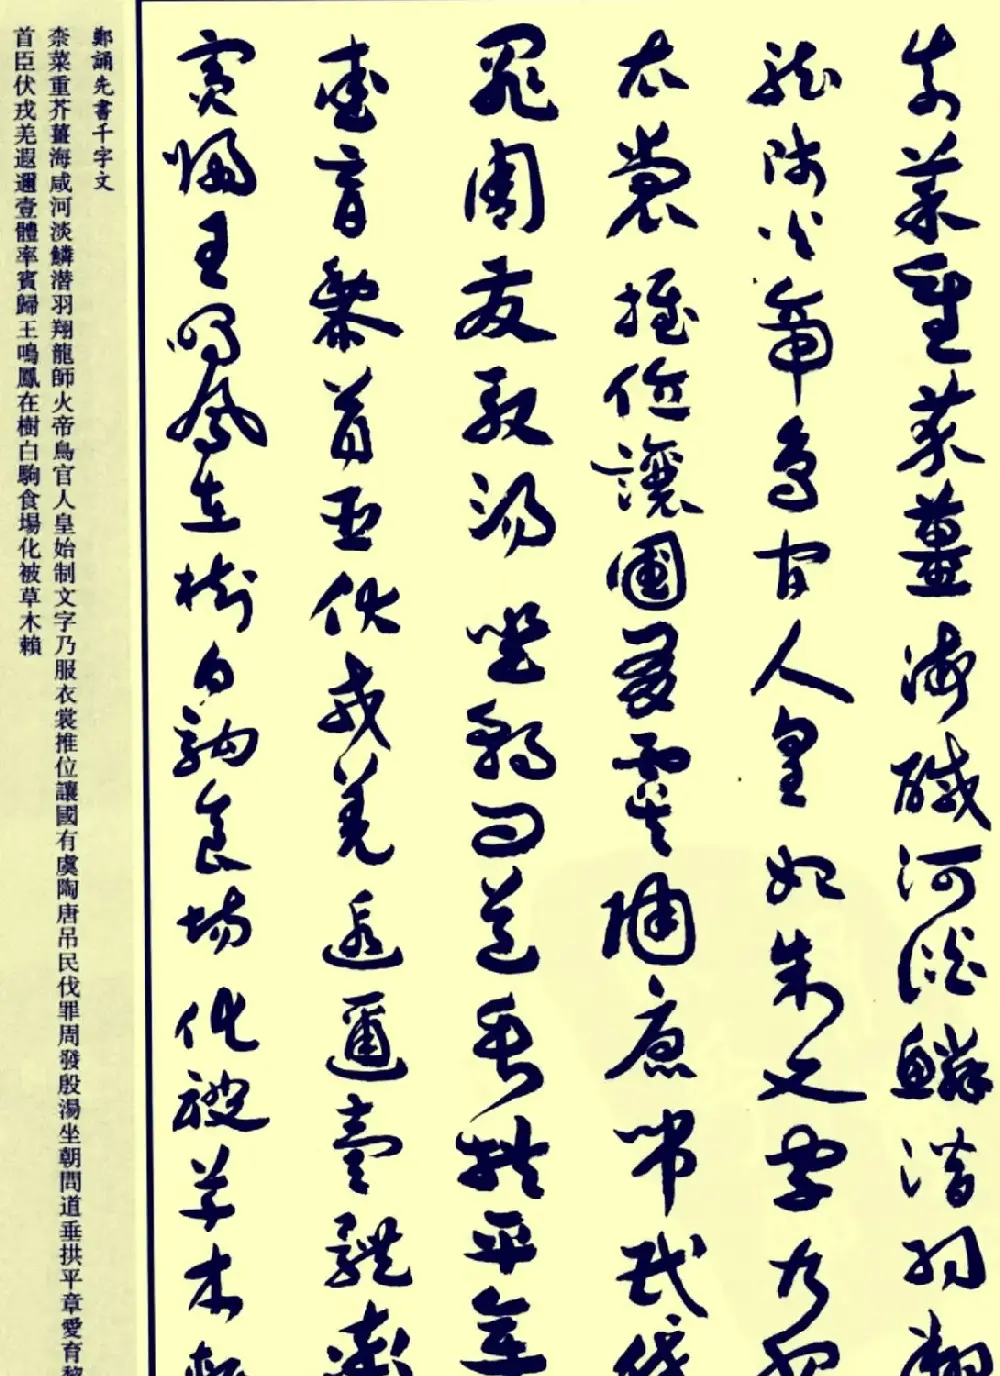 柰菜重芥薑海鹹河淡鱗潛羽翔
龍師火帝鳥官人皇始制文字乃服
衣裳推位讓國有虞陶唐吊民伐
罪周發殷湯坐朝問道垂拱平章
愛育黎首臣伏戎羌遐邇壹體率
賓歸王鳴鳳在樹白駒食場化被草木賴
鄭誦先書千字文
柰菜重芥薑海咸河淡鱗潜羽翔龍師火帝鳥官人皇始制文字乃服衣裳推位讓國有虞陶唐吊民伐罪周發殷湯坐朝問道垂拱平章愛育黎
首臣伏戎羌遐邇壹體率賓歸王鳴鳳在樹白駒食場化被草木賴